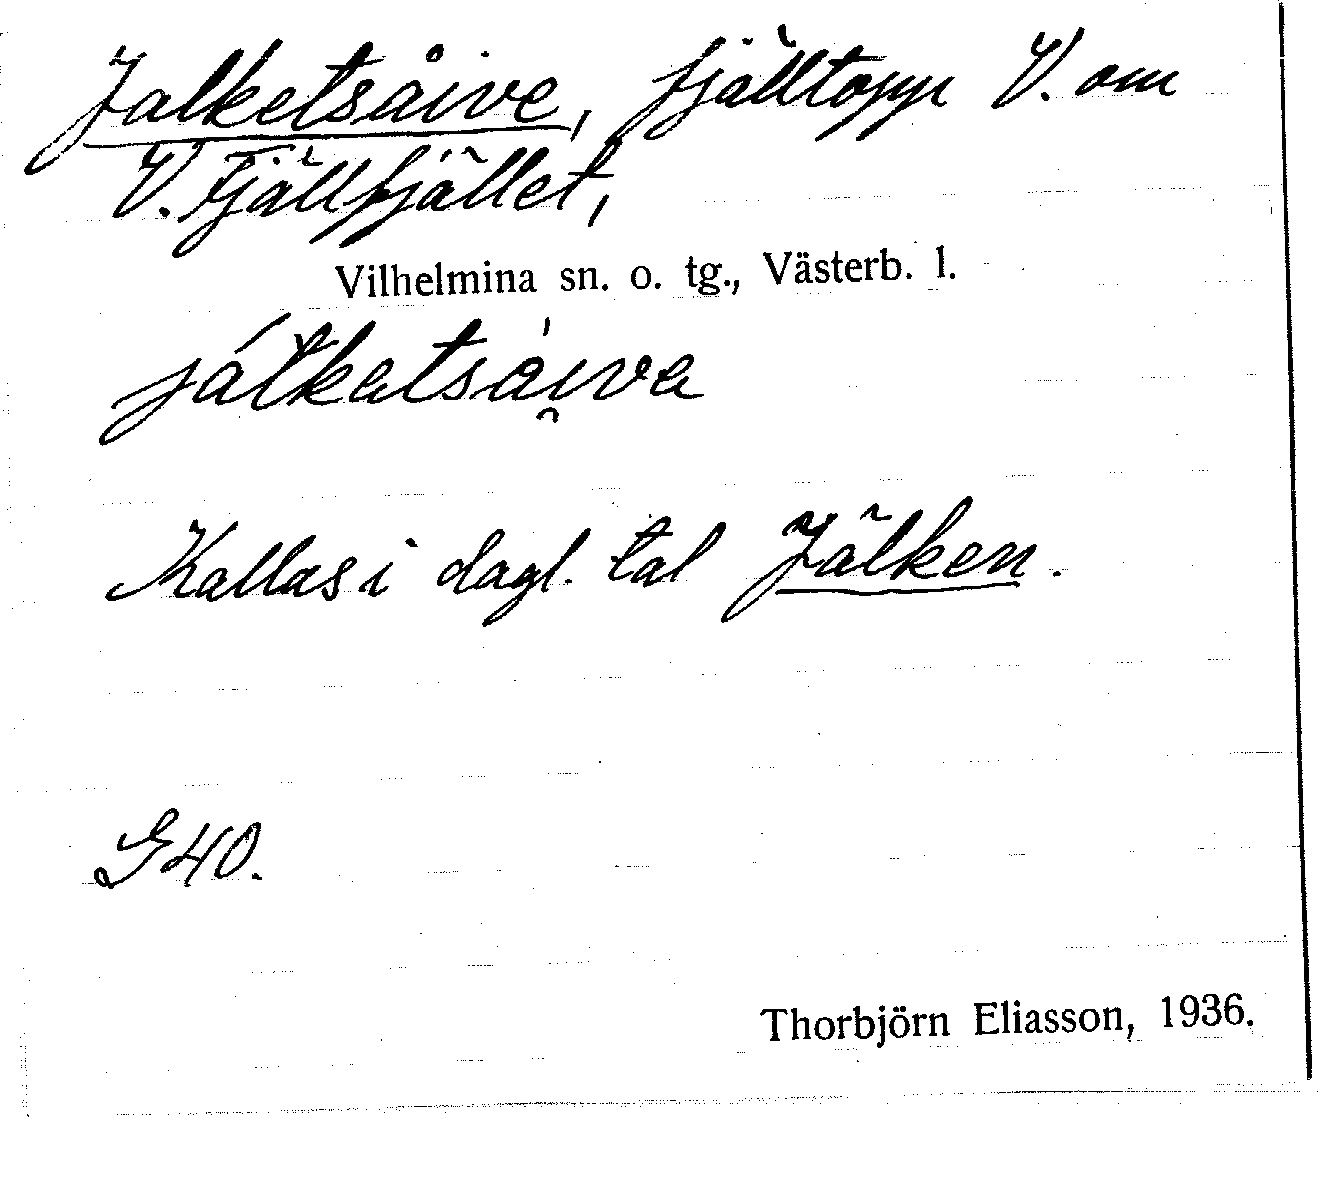 Jalketsåive, fjälltopp V. om
V. Fjällfjället,
Vilhelmina sn. o. tg., Västerb. l.
Kallas i dagl. tal Jälken.
G 40.
Thorbjörn Eliasson, 1936.